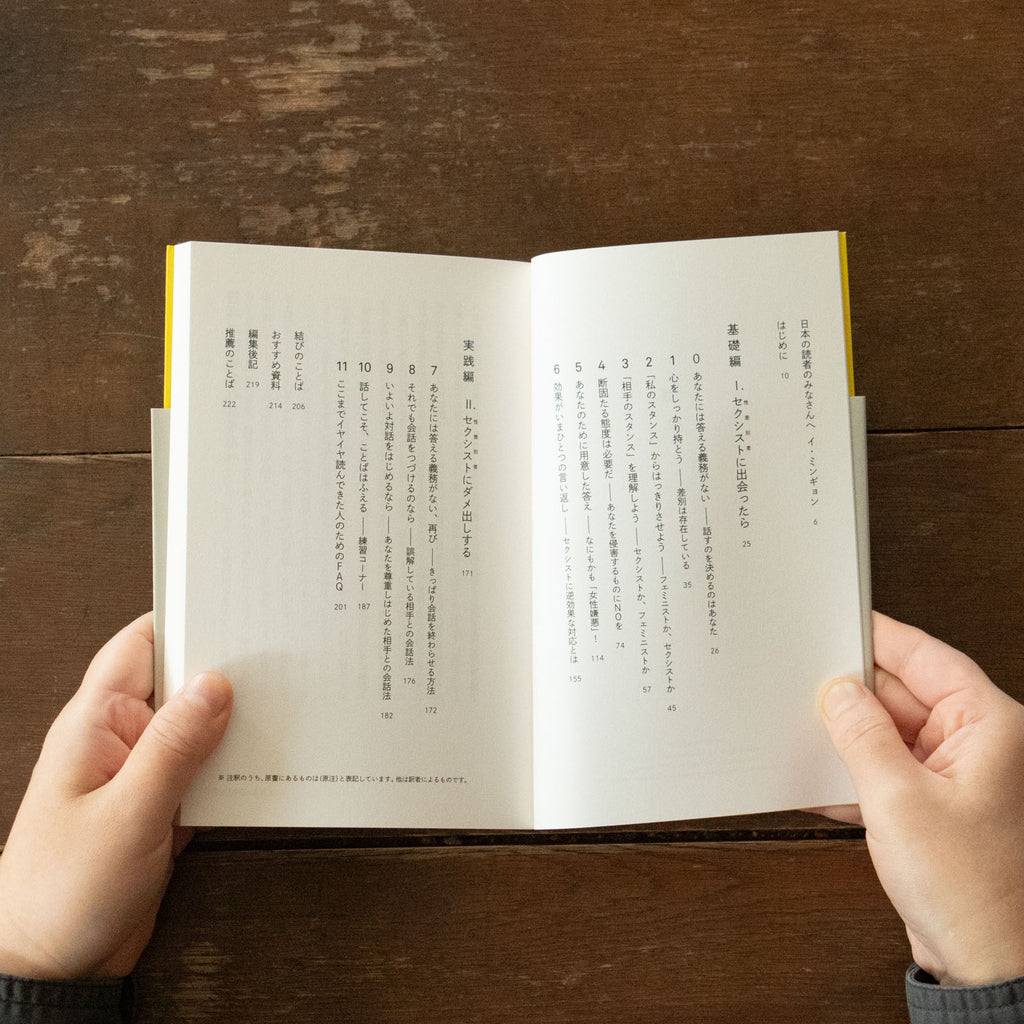 日本の読者のみなさんへ イ・ミンギョン 6
はじめに 10
基礎編 Ⅰ. セクシストに出会ったら 25
性差別者
0 あなたには答える義務がない――話すのを決めるのはあなた 26
1 心をしっかり持とう――差別は存在している 35
2 「私のスタンス」からはっきりさせよう――フェミニストか、セクシストか 45
3 「相手のスタンス」を理解しよう――セクシストか、フェミニストか 57
4 断固たる態度は必要だ――あなたを侵害するものにNOを 74
5 あなたのために用意した答え――なにもかも「女性嫌悪」! 114
6 効果がいまひとつの言い返し――セクシストに逆効果な対応とは 155
実践編 Ⅱ. セクシストにダメ出しする 171
性差別者
7 あなたには答える義務がない、再び――きっぱり会話を終わらせる方法 172
8 それでも会話をつづけるのなら――誤解している相手との会話法 176
9 いよいよ対話をはじめるなら――あなたを尊重しはじめた相手との会話法 182
10 話してこそ、ことばはふえる――練習コーナー 187
11 ここまでイヤイヤ読んできた人のためのFAQ 201
結びのことば 206
おすすめ資料 214
編集後記 219
推薦のことば 222
※ 注釈のうち、原書にあるものは(原注)と表記しています。他は訳者によるものです。